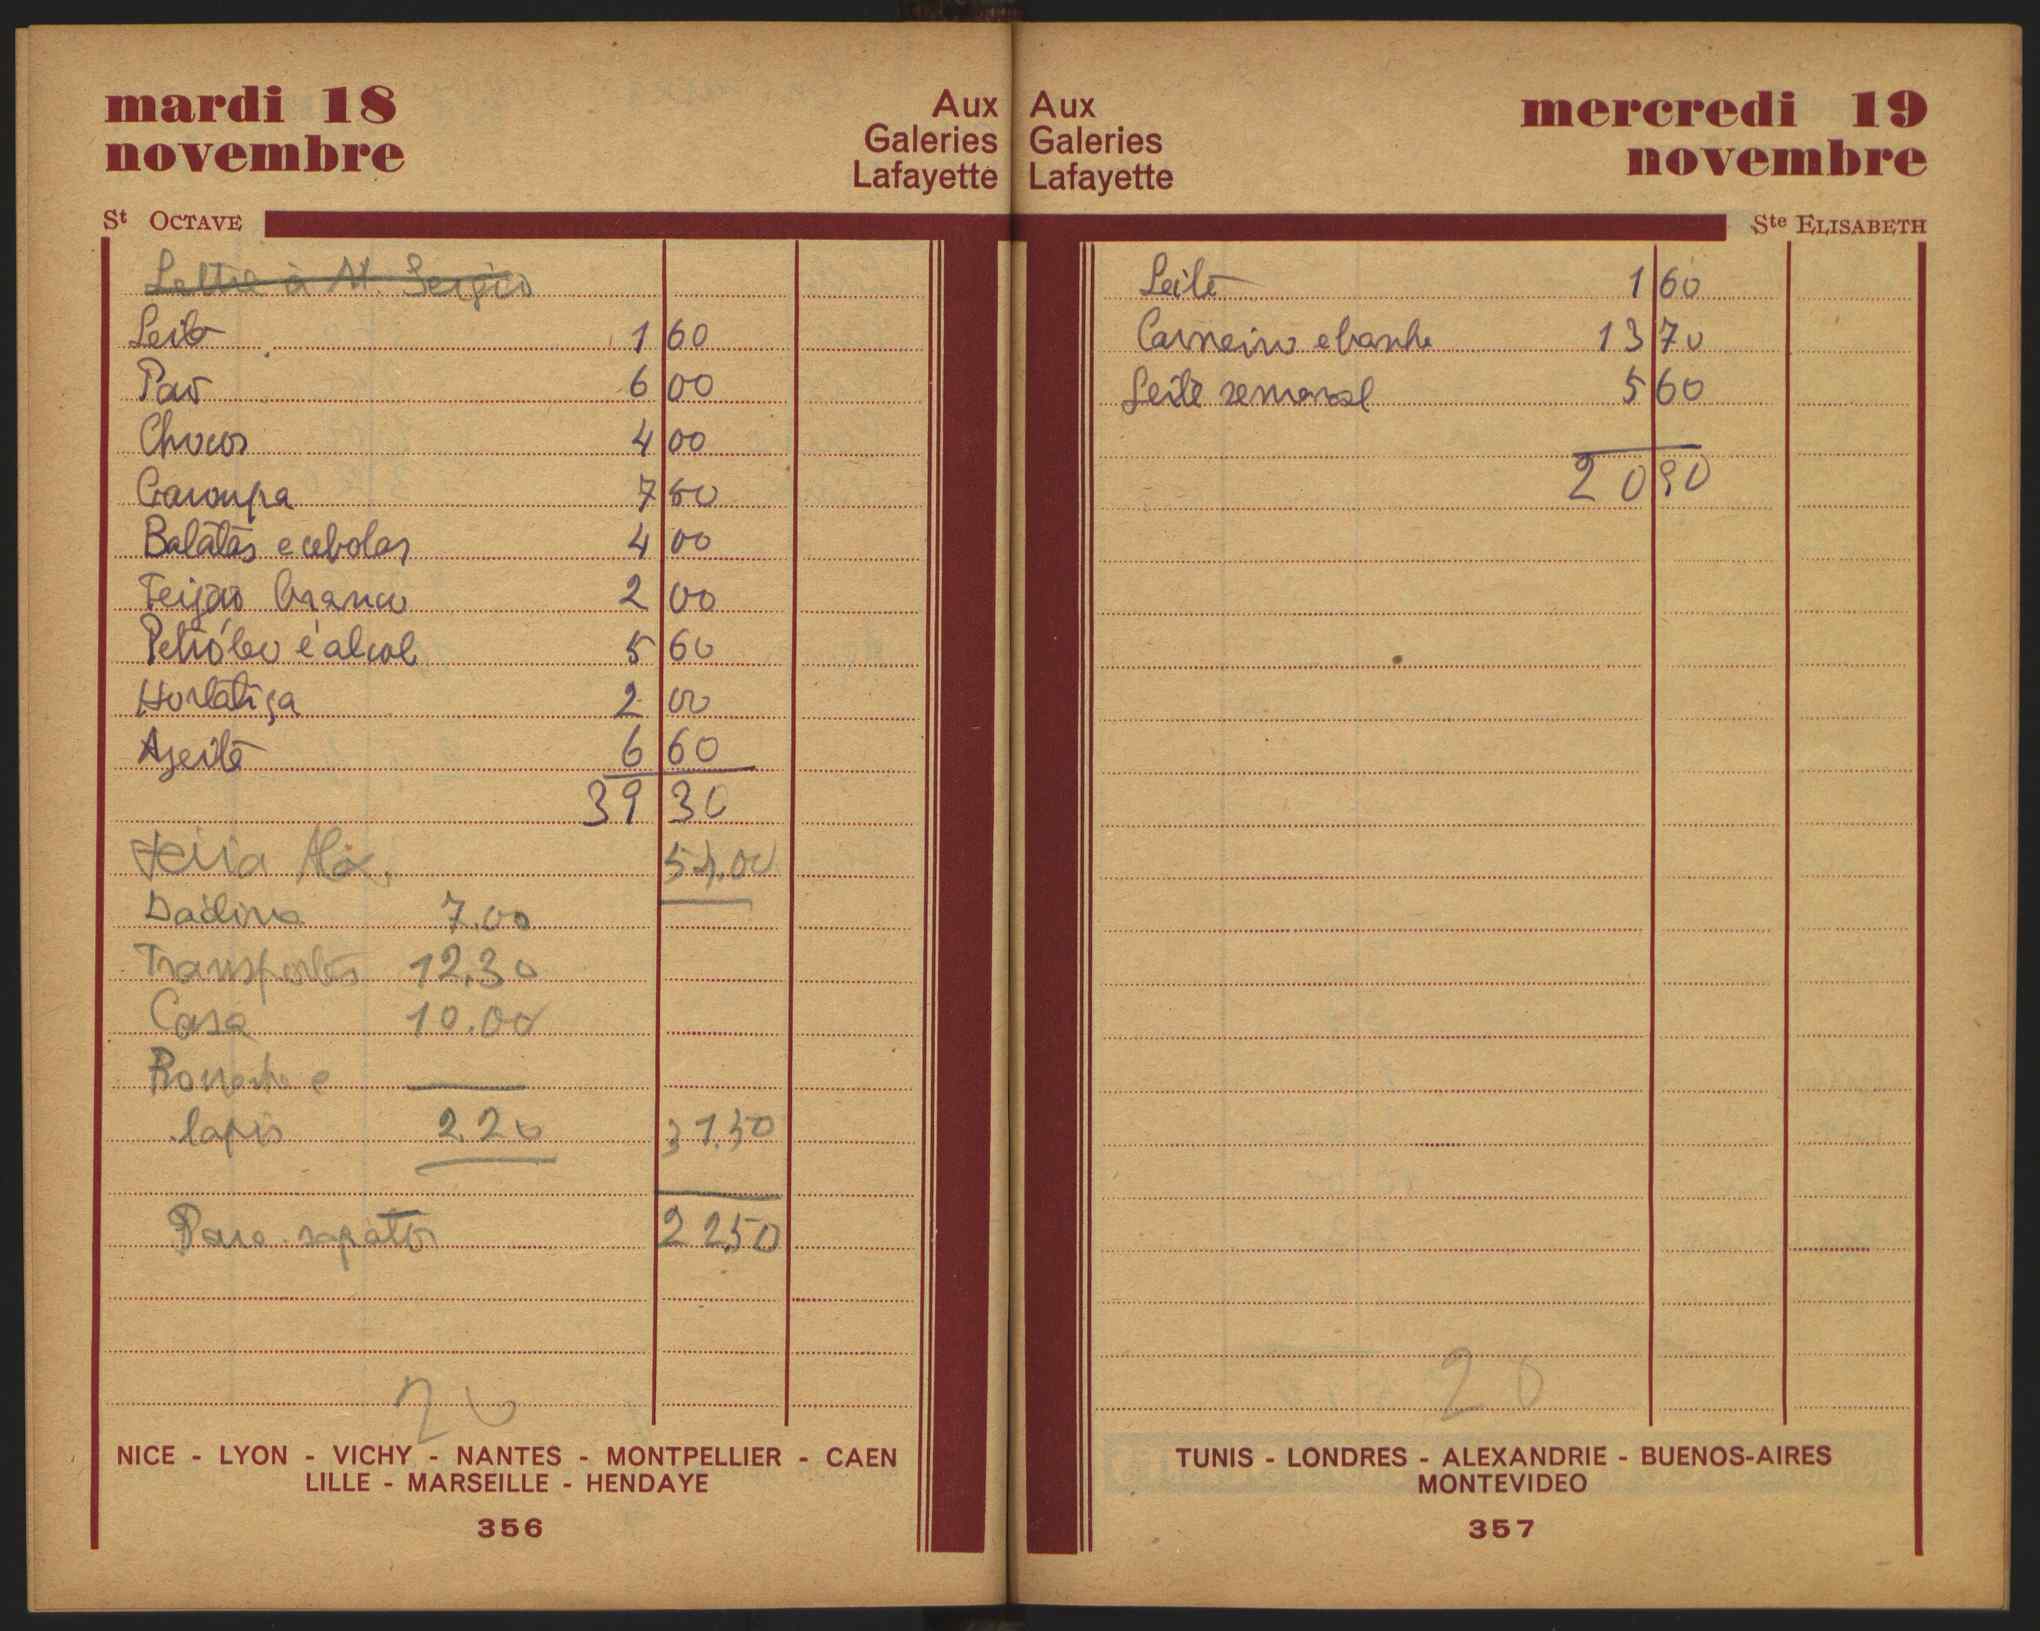 mardi 18
novembre
Aux
Galeries
Lafayette
St OCTAVE
Lettre à M. Sergio
Leite 1 60
Pão 6 00
Chocos 4 00
Garoupa 7 50
Batatas e cebolas 4 00
Feijão branco 2 00
Petróleo e alcool 5 60
Hortaliça 2 00
Azeite 6 60
39 30
54.00
7.00
Transportes 12.30
Casa 10.00
Borracha e
lapis 2.20 31.50
Para sapatos 22.50
20
NICE - LYON - VICHY - NANTES - MONTPELLIER - CAEN
LILLE - MARSEILLE - HENDAYE
356
Aux
Galeries
Lafayette
mercredi 19
novembre
Ste ELISABETH
Leite 1 60
Carneiro e banha 13 70
Leite semanal 5 60
20 90
20
TUNIS - LONDRES - ALEXANDRIE - BUENOS-AIRES
MONTEVIDEO
357